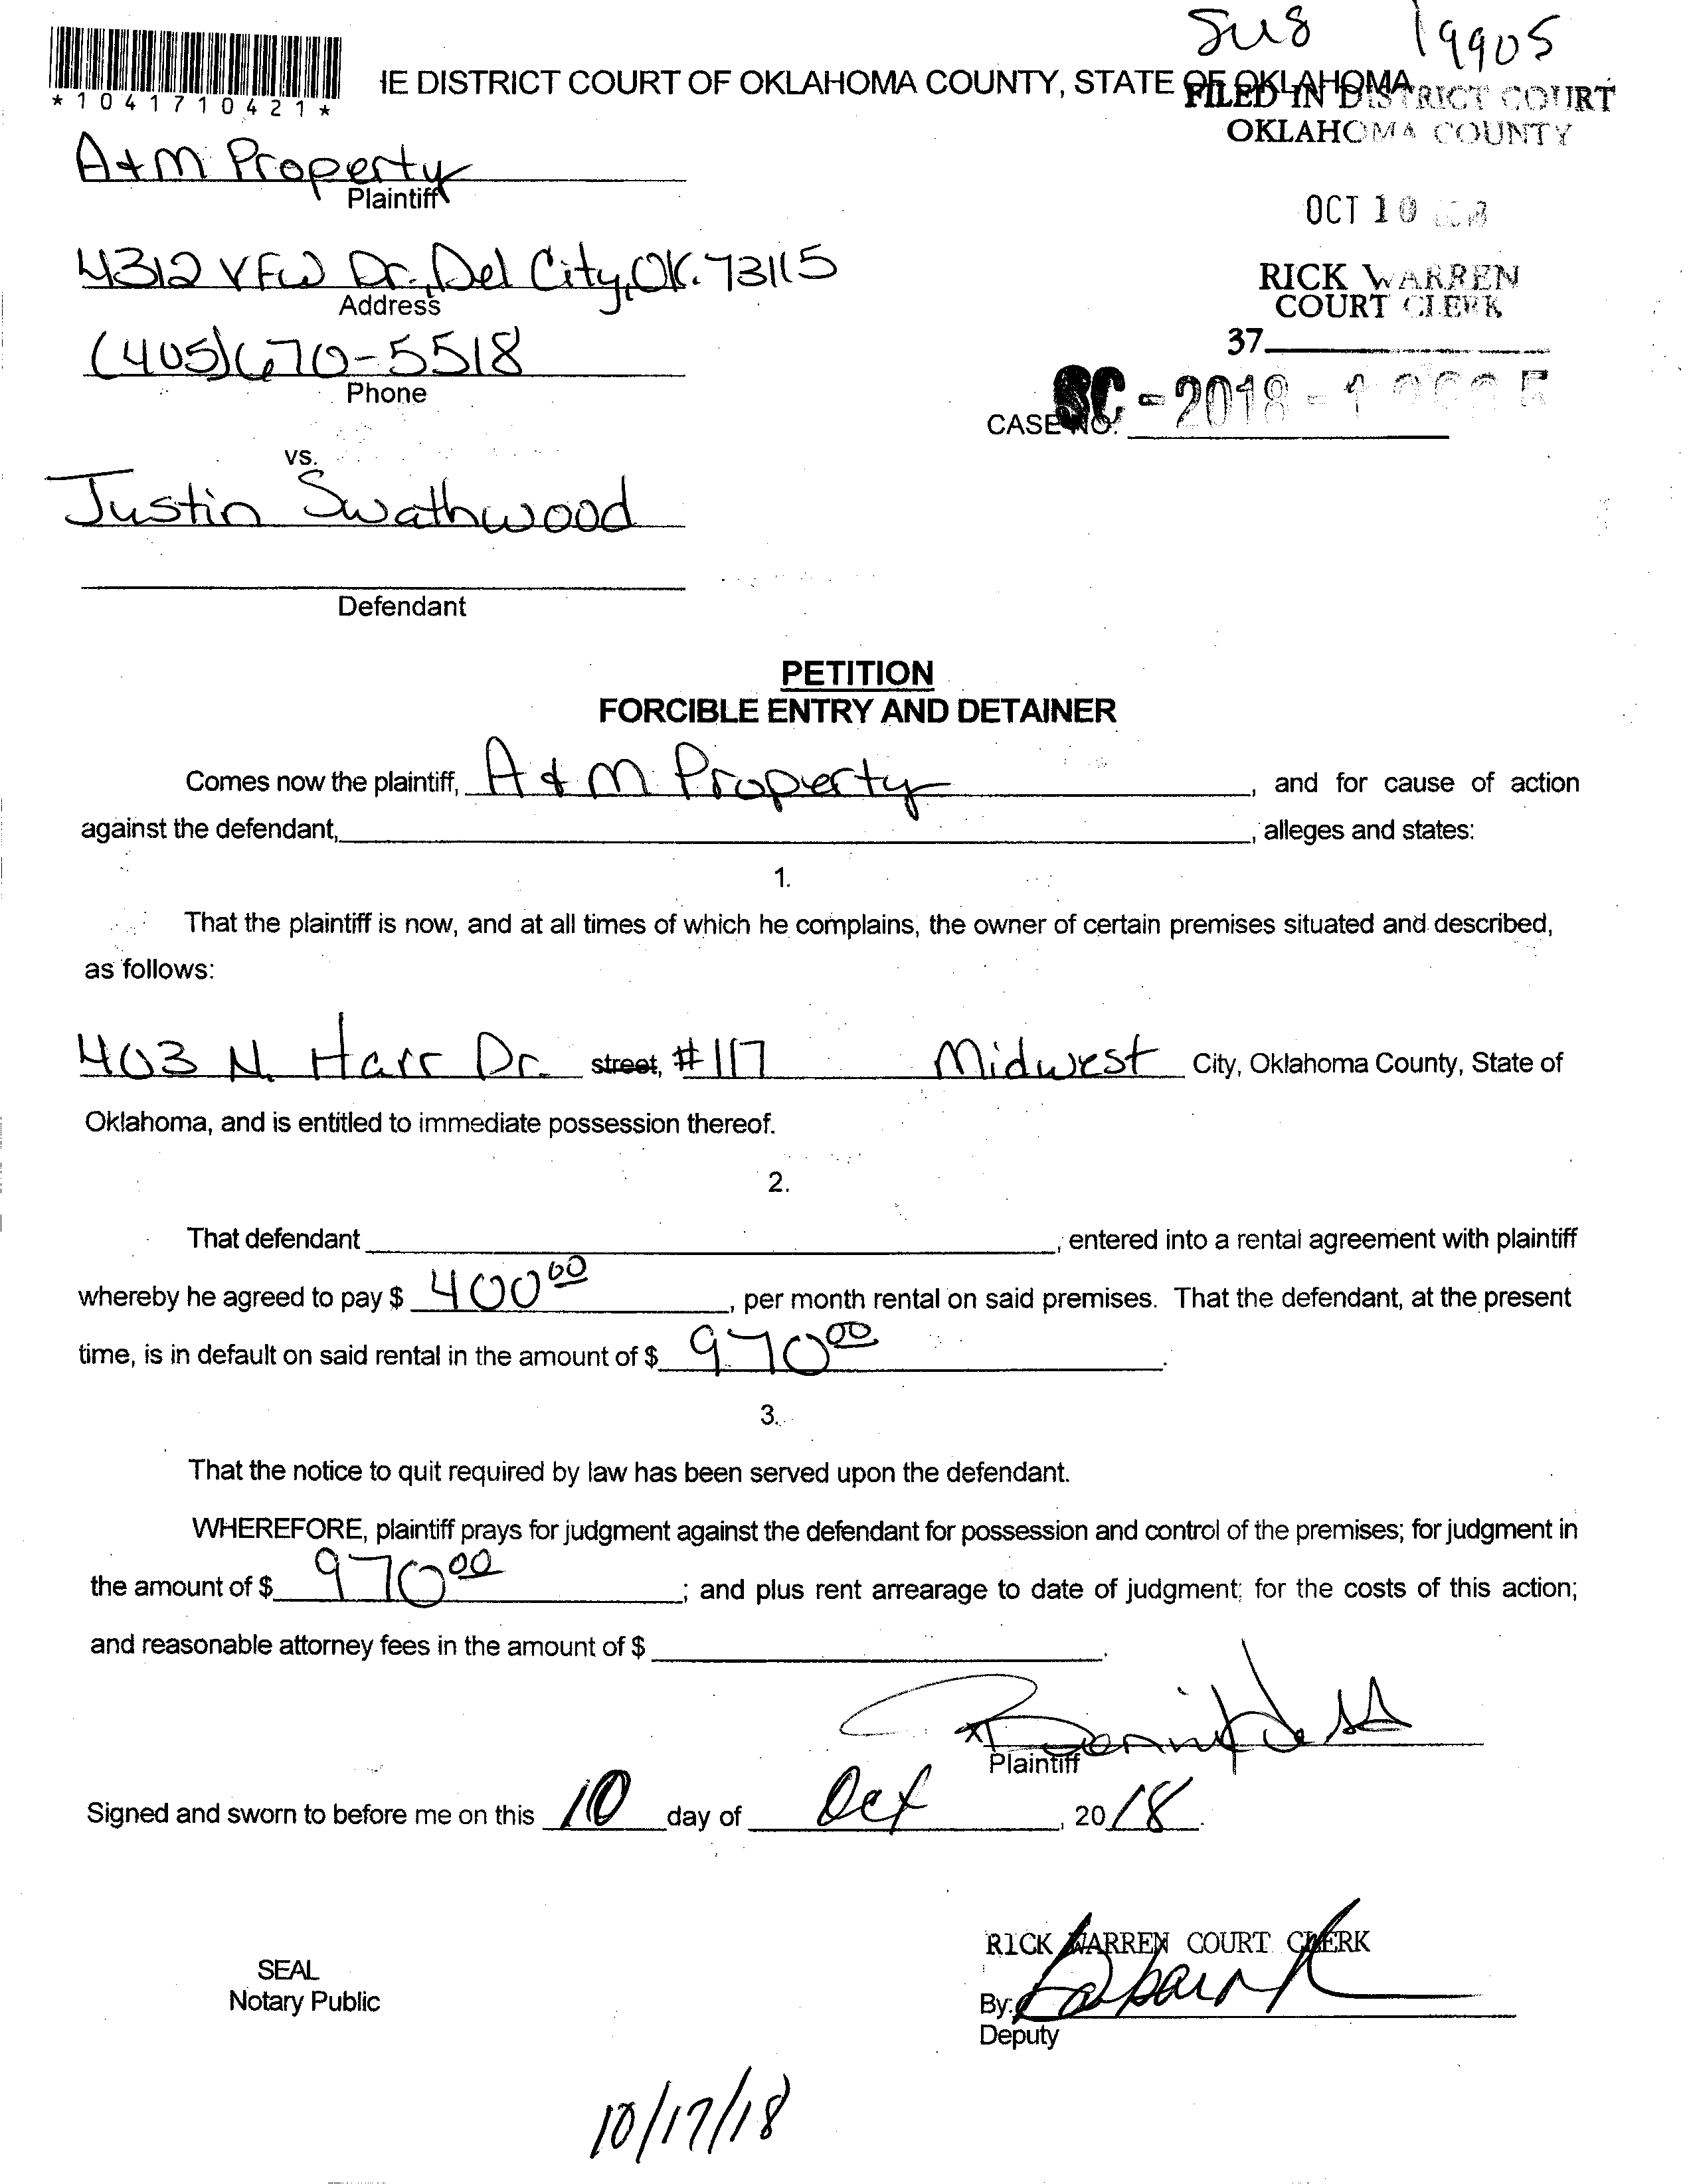 SUS 19905
*1041710421*
HE DISTRICT COURT OF OKLAHOMA COUNTY, STATE OF OKLAHOMA
FILED IN DISTRICT COURT
OKLAHOMA COUNTY
A+M Property
Plaintiff
OCT 10
4312 VFW Dr., Del City, OK. 73115
Address
RICK WARREN
COURT CLERK
37
(405)670-5518
Phone
CASE NO. SC-2018-
vs.
Justin Swathwood
Defendant
PETITION
FORCIBLE ENTRY AND DETAINER
Comes now the plaintiff, A+M Property, and for cause of action
against the defendant, , alleges and states:
1.
That the plaintiff is now, and at all times of which he complains, the owner of certain premises situated and described,
as follows:
403 N. Harr Dr. street, #117 Midwest City, Oklahoma County, State of
Oklahoma, and is entitled to immediate possession thereof.
2.
That defendant , entered into a rental agreement with plaintiff
whereby he agreed to pay $ 400 00, per month rental on said premises. That the defendant, at the present
time, is in default on said rental in the amount of $ 970 00.
3.
That the notice to quit required by law has been served upon the defendant.
WHEREFORE, plaintiff prays for judgment against the defendant for possession and control of the premises; for judgment in
the amount of $ 970 00; and plus rent arrearage to date of judgment; for the costs of this action;
and reasonable attorney fees in the amount of $ .
Plaintiff
Signed and sworn to before me on this 10 day of Oct, 2018.
RICK WARREN COURT CLERK
SEAL
Notary Public
By:
Deputy
10/17/18